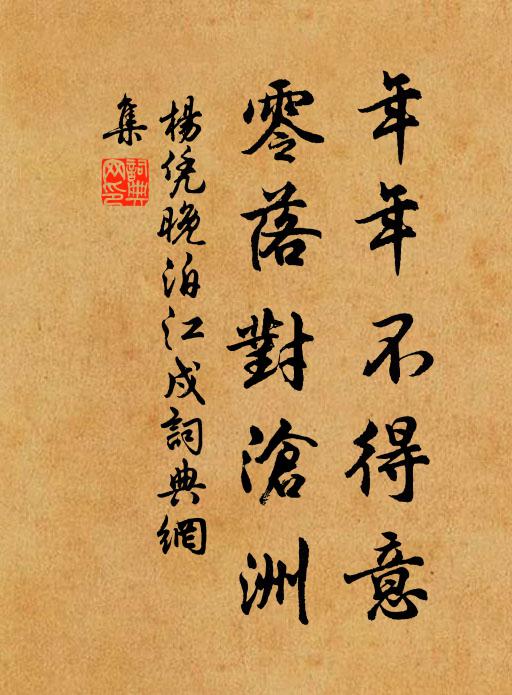 年年不得意
零落對滄洲
楊凭晚泊江戍詞典網
集
詞典网印